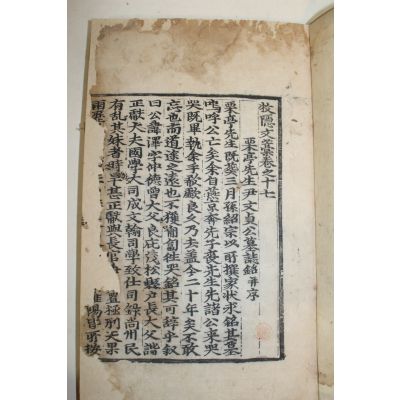 牧隱文藁卷之十七
栗亭先生尹文貞公墓誌銘 并序
栗亭先生旣葬三月孫紹宗以所撰家狀求銘其墓
嗚呼公亡矣余自燕京奔先子喪先生先諸公來哭
哭旣畢執余手歔欷良久乃去蓋今二十年矣不敢
忘也而道途之遠也不獲匍匐往哭銘其可辭乎叙
曰公諱澤字仲德曾大父良庇茂松縣戶長大父諧
正獻大夫國學大司成文翰司學致仕司錄尙州民
有乱其妹者時旱甚正獻與長官
置極刑天果
雨